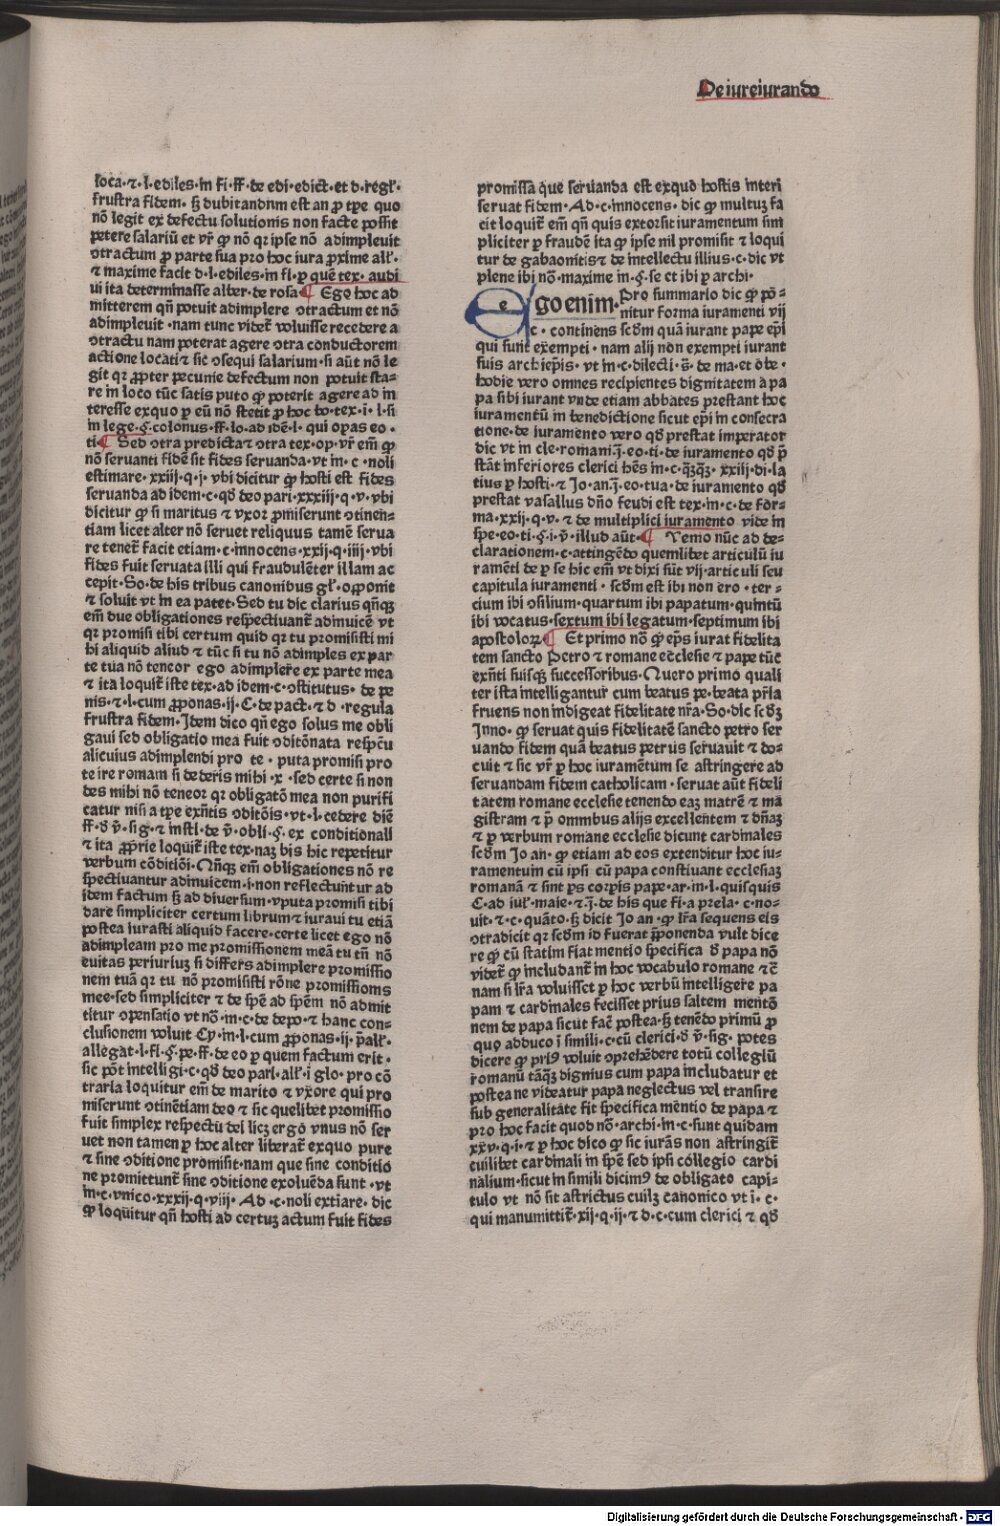 De iureiurando
loca·⁊·l·ediles·in fi·ff·de edi·edict·et d·regl̕·
frustra fidem· sꝫ dubitandum est an ꝓ tꝑe quo
nō legit ex defectu solutionis non facte possit
petere salariū et vr̄ ꝙ nō qꝛ ipse nō adimpleuit
ↄtractum ꝓ parte sua pro hoc iura ꝓxime all̕·
⁊ maxime facit d·l·ediles·in fi·ꝑ quē tex· audi
ui ita determinasse alber·de rosa ¶ Ego hoc ad
mitterem qn̄ potuit adimplere ↄtractum et nō
adimpleuit·nam tunc videt̄ voluisse recedere a
ↄtractu nam poterat agere ↄtra conductorem
actione locati ⁊ sic ↄsequi salarium·si aūt nō le
git qꝛ ꝓpter pecunie defectum non potuit sta⸗
re in loco tūc satis puto ꝙ poterit agere ad in
teresse exquo ꝑ eū nō stetit ꝓ hoc bo·tex·i·l·si
in lege·§·colonus·ff·lo·ad idē·l·qui opas eo·
ti ¶ Sed ↄtra predicta ⁊ ↄtra tex·op·vr̄ em̄ ꝙ
nō seruanti fidē sit fides seruanda·vt in·c·noli
estimare·xxiij·q·j·vbi dicitur ꝙ hosti est fides
seruanda ad idem·c·qd̄ deo pari·xxxiij·q·v·vbi
dicitur ꝙ si maritus ⁊ vxor ꝓmiserunt ↄtinen⸗
tiam licet alter nō seruet reliquus tamē serua
re tenet̄ facit etiam·c·innocens·xxij·q·iiij·vbi
fides fuit seruata illi qui fraudulēter illam ac
cepit·So·de his tribus canonibus gl̕·oꝓponit
⁊ soluit vt in ea patet·Sed tu dic clarius qn̄qꝫ
em̄ due obligationes respectiuant̄ adinuicē vt
qꝛ promisi tibi certum quid qꝛ tu promisisti mi
bi aliquid aliud ⁊ tūc si tu nō adimples ex par
te tua nō teneor ego adimplere ex parte mea
⁊ ita loquit̄ iste tex·ad idem·c·ↄstitutus· de pe
nis·⁊·l·cum ꝓponas·ij·C·de pact·⁊ d·regula
frustra fidem·Idem dico qn̄ ego solus me obli
gaui sed obligatio mea fuit ↄditōnata respcū
alicuius adimplendi pro te·puta promisi pro
te ire romam si dederis mihi·x·sed certe si non
des mihi nō teneor qꝛ obligatō mea non purifi
catur nisi a tpe exn̄tis ↄditōis·vt·l·cedere diē
ff·d v̄·sig·⁊ insti·de v̄·obli·§·ex conditionali
⁊ ita ꝓprie loquit̄ iste tex·naꝫ bis hic repetitur
verbum cōditiōi·Qn̄qꝫ em̄ obligationes nō re
spectiuantur adinuicem·i·non reflectunt̄ur ad
idem factum sꝫ ad diuersum·vputa promisi tibi
dare simpliciter certum librum ⁊ iuraui tu etiā
postea iurasti aliquid facere·certe licet ego nō
adimpleam pro me promissionem meā tu tn̄ nō
euitas periuriuꝫ si differs adimplere promissio
nem tuā qꝛ tu nō promisisti rōne promissionis
mee·sed simpliciter ⁊ de spē ad spēm nō admit
titur ↄpensatio vt nō·in·c·de depo·⁊ hanc con⸗
clusionem voluit Cy·in·l·cum ꝓponas·ij·ꝑall̕·
allegat·l·fi·§·pe·ff·de eo ꝑ quem factum erit·
sic pōt intelligi·c·qd̄ deo pari·all̕·i glo·pro cō
traria loquitur em̄ de marito ⁊ vxore qui pro
miserunt ↄtinētiam deo ⁊ sic quelibet promissio
fuit simplex respectu dei licꝫ ergo vnus nō ser
uet non tamen ꝑ hoc alter liberat̄ exquo pure
⁊ sine ↄditione promisit·nam que sine conditio
ne promittunt̄ sine ↄditione exoluēda sunt·vt
in·c·vnico·xxxij·q·viij· Ad·c·noli extiare· dic
ꝙ loquitur qn̄ hosti ad certuꝫ actum fuit fides
promissa que seruanda est exquo hostis interi
seruat fidem·Ad·c·innocens· dic ꝙ multuꝫ fa
cit loquit̄ em̄ qn̄ quis extorsit iuramentum sim
pliciter ꝑ fraudē ita ꝙ ipse nil promisit ⁊ loqui
tur de gabaonitis ⁊ de intellectu illius·c·dic vt
plene ibi nō·maxime in·§·se et ibi ꝑ archi·
e
go enim· Pro summario dic ꝙ pō⸗
nitur forma iuramenti vij
c·continens scdm̄ quā iurant pape epi̅
qui sunt exempti·nam alij non exempti iurant
suis archiepis̄·vt in·c·dilecti·s̄·de ma·et obe·
hodie vero omnes recipientes dignitatem a pa
pa sibi iurant vnde etiam abbates prestant hoc
iuramentū in benedictione sicut epi̅ in consecra
tione·de iuramento vero qd̄ prestat imperator
dic vt in cle·romani·j̄·eo·ti·de iuramento qd̄ p̄
stāt inferiores clerici hēs in·c·qꝫqꝫ·xxiij·di·la
tius ꝑ hosti·⁊ Jo·an·j̄·eo·tua·de iuramento qd̄
prestat vasallus dn̄o feudi est tex·in·c·de for⸗
ma·xxij·q·v·⁊ de multiplici iuramento vide in
spe·eo·ti·§·i·v̄·illud aūt· ¶ Uemo nūc ad de⸗
clarationem·c·attingēdo quemlibet articulū iu
ramēti de ꝑ se hic em̄ vt dixi sūt vij·articuli seu
capitula iuramenti·scdm est ibi non ero·ter⸗
cium ibi ↄsilium·quartum ibi papatum·quintū
ibi vocatus·sextum ibi legatum·septimum ibi
apostoloꝝ ¶ Et primo nō ꝙ eps̄ iurat fidelita
tem sancto Petro ⁊ romane ecclesie ⁊ pape tūc
exn̄ti suisqꝫ successoribus·Quero primo quali
ter ista intelligantur cum beatus pe·beata pr̄ia
fruens non indigeat fidelitate nr̄a·So·dic scdꝫ
Inno·ꝙ seruat quis fidelitatē sancto petro ser
uando fidem quā beatus petrus seruauit ⁊ do⸗
cuit ⁊ sic vr̄ ꝑ hoc iuramētum se astringere ad
seruandam fidem catholicam·seruat aūt fideli
tatem romane ecclesie tenendo eaꝫ matrē ⁊ ma
gistram ⁊ p̄ omnibus alijs excellentem ⁊ dn̄aꝫ
⁊ ꝑ verbum romane ecclesie dicunt cardinales
scdm̄ Jo an·ꝙ etiam ad eos extenditur hoc iu⸗
ramentum cū ipsi cū papa constiuant ecclesiaꝫ
romanā ⁊ sint ꝑs corꝑis pape·ar·in·l·quisquis
C·ad iul̕·maie·⁊·j̄·de his que fi·a prela·c·no⸗
uit·⁊·c·quāto·sꝫ dicit Jo an·ꝙ lr̄a sequens eis
ↄtradicit qꝛ scdm id fuerat ꝓponenda vult dice
re ꝙ cū statim fiat mentio specifica d̄ papa nō
videt̄ ꝙ includant̄ in hoc vocabulo romane ⁊ c̄
nam si lr̄a voluisset ꝑ hoc verbū intelligere pa
pam ⁊ cardinales fecisset prius saltem mentō
nem de papa sicut fac̄ postea·sꝫ tenēdo primū ꝓ
quo adduco i simili·c·cū clerici·d̄ v̄·sig·potes
dicere ꝙ pri⁹ voluit ↄprehēdere totū collegiū
romanū tāqꝫ dignius cum papa includatur et
postea ne videatur papa neglectus vel transire
sub generalitate fit specifica mentio de papa ⁊
pro hoc facit quod nō·archi·in·c·sunt quidam
xxv·q·i·⁊ ꝑ hoc dico ꝙ sic iurās non astringit̄
cuilibet cardinali in spē sed ipsi collegio cardi
nalium·sicut in simili dicim⁹ de obligato capi⸗
tulo vt nō sit astrictus cuilꝫ canonico vt i·c·
qui manumittit̄·xij·q·ij·⁊ d·c·cum clerici ⁊ qd̄
Digitalisierung gefördert durch die Deutsche Forschungsgemeinschaft - DFG